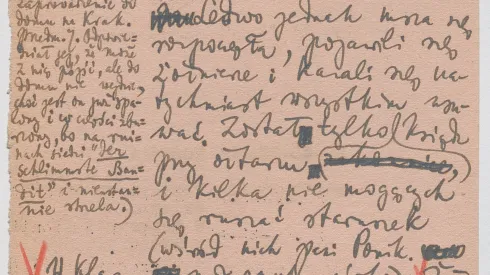 zaprowadzenie do
domu na Krak.
Przedm. 7. Odpowie-
dział jej, że może
z nią pójść, ale do
domu nie wejdzie,
choć jest on już spa-
lony i w części zbu-
rzony, bo na rui-
nach siedzi "der
Schlimmste Ban-
dit" i nieusta-
nie strzela.)
Ledwo jednak msza się
rozpoczęła, pojawili się
żołnierze i kazali się na-
tychmiast wszystkim usu-
wać. Został tylko ksiądz
przy ołtarzu,
i kilka nie mogących
się ruszać staruszek
(wśród nich pani Ponik.